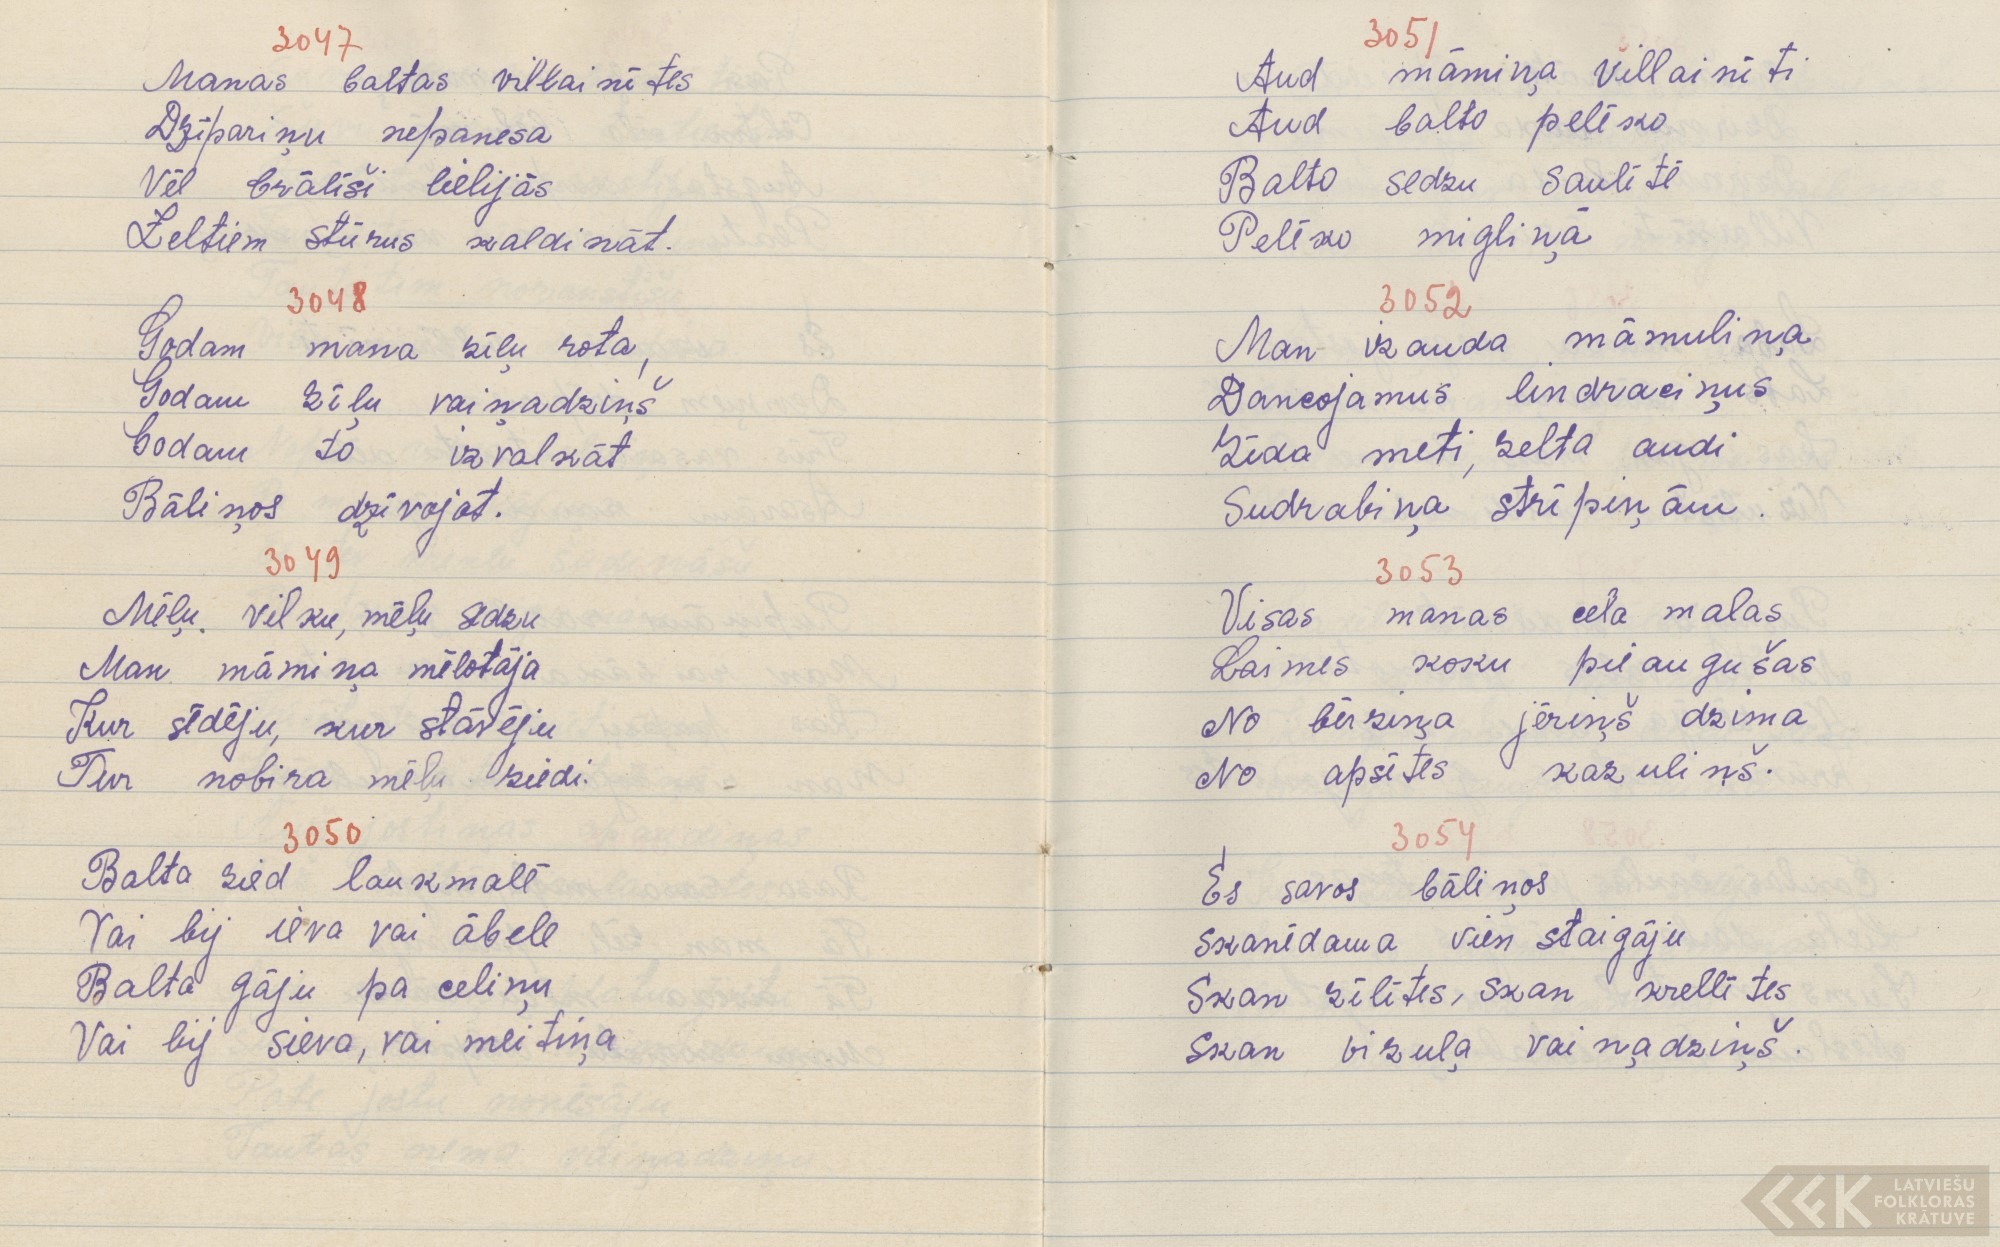 3047
Manas baltas villainītes
Dzīpariņu nepanesa
Vēl brālīši lielījās
Zeltiem stūrus kaldināt.
3048
Godam mana zīļu rota,
Godam zīļu vaiņadziņš
Godam to izvalkāt
Bāliņos dzīvojot.
3049
Mēļu vilku, mēļu sedzu
Man māmiņa mēlotāja
Kur sēdēju, kur stāvēju
Tur nobira mēļu ziedi.
3050
Balta zied laukmalē
Vai bij ieva vai ābele
Balta gāju pa celiņu
Vai bij sieva, vai meitiņa
3051
Aud māmiņa villainīti
Aud balto pelēko
Balto sedzu saulītē
Pelēko migliņā
3052
Man izauda māmuliņa
Dancojamus lindraciņus
Zīda meti, zelta audi
Sudrabiņa strīpiņām.
3053
Visas manas ceļa malas
Laimes koku pieaugušas
No bērziņa jēriņš dzima
No apsītes kazuliņš.
3054
Es savos bāliņos
Skanēdama vien staigāju
Skan zīlītes, skan krellītes
Skan vizuļa vaiņadziņš.
LATVIEŠU
FOLKLORAS
KRĀTUVE